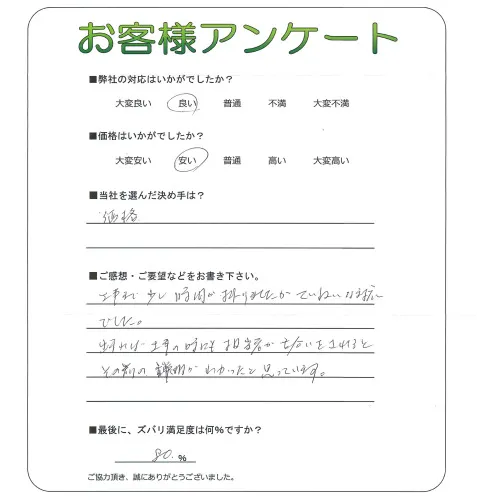 お客様アンケート
■弊社の対応はいかがでしたか？
大変良い 良い 普通 不満 大変不満
■価格はいかがでしたか？
大変安い 安い 普通 高い 大変高い
■当社を選んだ決め手は？
価格
■ご感想・ご要望などをお書き下さい。
工事まで少し時間が掛りましたがていねいな対応
でした。
工事の時にも
その方の説明がわかったと思っています。
■最後に、ズバリ満足度は何％ですか？
80. ％
ご協力頂き、誠にありがとうございました。